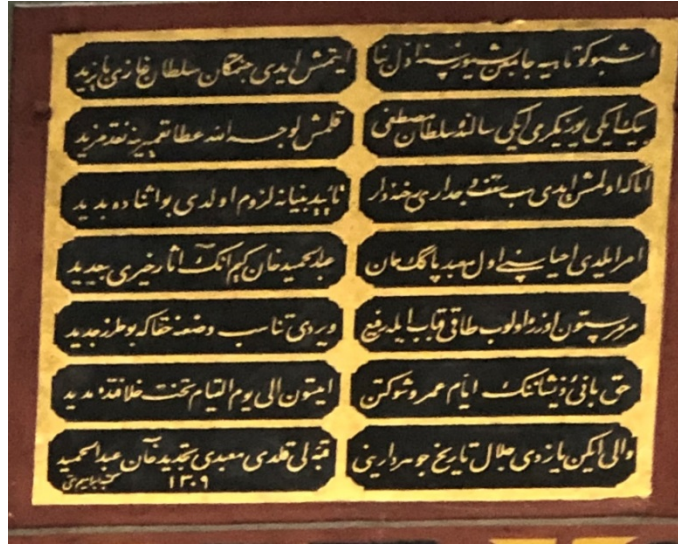 اشبو كوتاهيه جامعن اول بنا
ايتمش ايدى جنتمكان سلطان غازى بايزيد
بيك ايكى يوز يكرمى ايكى سالنده سلطان مصطفى
قلمش لوجه الله عطا تعميرينه نقد مزيد
اما كه اولمش ايدى سقف و جدارى رخنه دار
تأييد بنيانه لزوم اولدى بو اثناده بديد
امر ايلدى احياسنى اول معبد پاكك همان
عبدالحميد خان كيم انك آثار خيرى بيعديد
مرمر ستون اوزره اولوب طاقى قباب ايله رفيع
ويردى تناسب وضعنه حقا كه بو طرز جديد
حق بانئ ذيشاننك ايام عمر و شوكتن
ايتسون الى يوم القيام تخت خلافتده مديد
والى ايكن يازدى جلال تاريخ جوهردارينى
قبه لى قلدى معبدى تجديد خان عبدالحميد
١٣٠٩